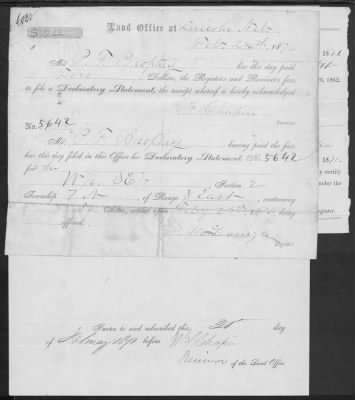 $ 2.00
Land Office at Lincoln Neb.
Feby 25th, 187
Mr. P. F. Brophy has this day paid
Two Dollars, the Register's and Receiver's fees,
to file a Declaratory Statement, the receipt whereof is hereby acknowledged.
Receiver.
No. 5642
Mr. P. F. Brophy having paid the fees,
has this day filed in this Office his Declaratory Statement, No. 5642
for the
W ½ SE ¼ Section 2
Township 7 N, of Range 3 East, containing
80 acres, settled upon Feby 25th, 18 being
offered.
Register.
20, 1862.
certify
Register.
Sworn to and subscribed this 26 day
of May 1871 before W. S. Chapin
Receiver of the Land Office